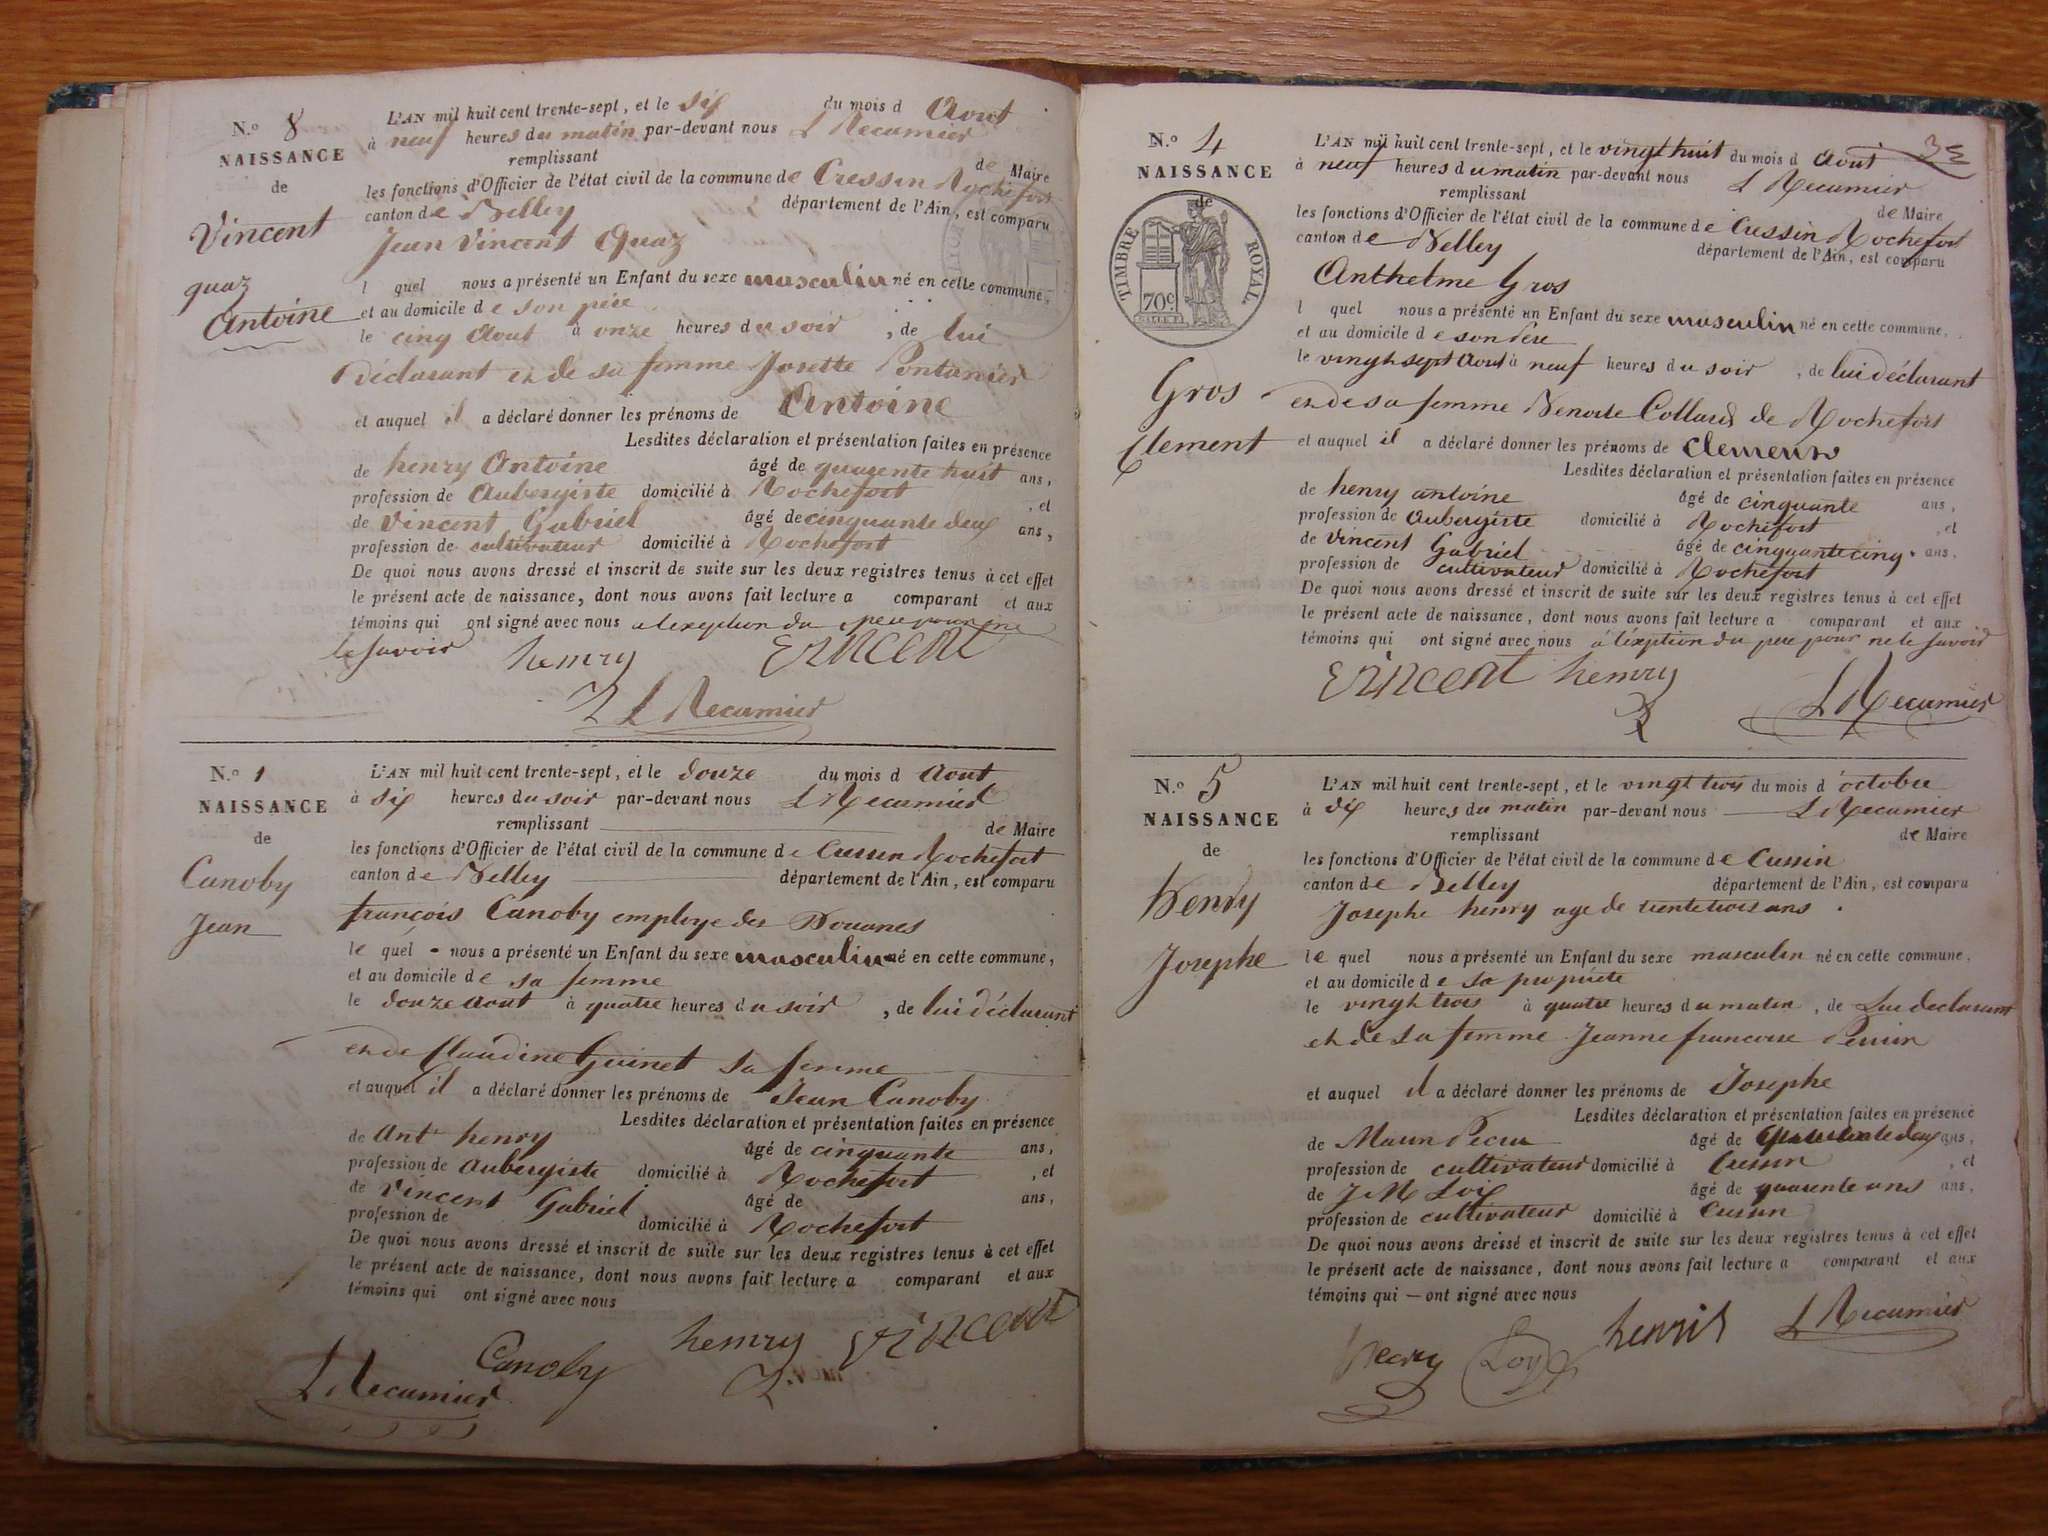 N.º 8
NAISSANCE
de
Vincent
quaz
Antoine
L'AN mil huit cent trente-sept, et le six du mois d Aout
à neuf heures du matin par-devant nous L Recamier
remplissant de Maire
les fonctions d'Officier de l'état civil de la commune de Cressin Rochefort
canton de Belley département de l'Ain, est comparu
Jean Vincent Quaz
l quel nous a présenté un Enfant du sexe masculin né en cette commune,
et au domicile de son père
le cinq Aout à onze heures du soir, de lui
déclarant et de sa femme Josette Pontanier
et auquel il a déclaré donner les prénoms de Antoine
Lesdites déclaration et présentation faites en présence
de henry Antoine âgé de quarente huit ans,
profession de Aubergiste domicilié à Rochefort, et
de Vincent Gabriel âgé de cinquante deux ans,
profession de cultivateur domicilié à Rochefort
De quoi nous avons dressé et inscrit de suite sur les deux registres tenus à cet effet
le présent acte de naissance, dont nous avons fait lecture a comparant et aux
témoins qui ont signé avec nous a l'exeption du pere pour ne
le savoir
henry Vincent
L Recamier
N.º 1
NAISSANCE
de
Canoby
Jean
L'AN mil huit cent trente-sept, et le douze du mois d Aout
à six heures du soir par-devant nous L Recamier
remplissant de Maire
les fonctions d'Officier de l'état civil de la commune de Cressin Rochefort
canton de Belley département de l'Ain, est comparu
françois Canoby employe des Douanes
le quel nous a présenté un Enfant du sexe masculin né en cette commune,
et au domicile de sa femme
le douze aout à quatre heures du soir, de lui déclarant
et de Claudine Guinet sa femme
et auquel il a déclaré donner les prénoms de Jean Canoby
Lesdites déclaration et présentation faites en présence
de Ant henry âgé de cinquante ans,
profession de Aubergiste domicilié à Rochefort, et
de Vincent Gabriel âgé de ans,
profession de domicilié à Rochefort
De quoi nous avons dressé et inscrit de suite sur les deux registres tenus à cet effet
le présent acte de naissance, dont nous avons fait lecture a comparant et aux
témoins qui ont signé avec nous
henry Vincent
Canoby
L Recamier
N.º 4
NAISSANCE
de
TIMBRE ROYAL
70c
Gros
Clement
L'AN mil huit cent trente-sept, et le vingt huit du mois d Aout
à neuf heures du matin par-devant nous L Recamier
remplissant de Maire
les fonctions d'Officier de l'état civil de la commune de Cressin Rochefort
canton de Belley département de l'Ain, est comparu
Anthelme Gros
l quel nous a présenté un Enfant du sexe masculin né en cette commune,
et au domicile de son Père
le vingt sept Aout à neuf heures du soir, de lui déclarant
et de sa femme Benoite Collard de Rochefort
et auquel il a déclaré donner les prénoms de Clement
Lesdites déclaration et présentation faites en présence
de henry antoine âgé de cinquante ans,
profession de Aubergiste domicilié à Rochefort, et
de Vincent Gabriel âgé de cinquante cinq ans,
profession de cultivateur domicilié à Rochefort
De quoi nous avons dressé et inscrit de suite sur les deux registres tenus à cet effet
le présent acte de naissance, dont nous avons fait lecture a comparant et aux
témoins qui ont signé avec nous à l'éxption du pere pour ne le savoir
Vincent henry
L Recamier
N.º 5
NAISSANCE
de
henry
Josephe
L'AN mil huit cent trente-sept, et le vingt trois du mois d'octobre
à dix heures du matin par-devant nous L Recamier
remplissant de Maire
les fonctions d'Officier de l'état civil de la commune de Cressin
canton de Belley département de l'Ain, est comparu
Josephe henry age de trente trois ans
le quel nous a présenté un Enfant du sexe masculin né en cette commune,
et au domicile de sa propriete
le vingt trois à quatre heures du matin, de Lui declarant
et de sa femme Jeanne francoise Perrin
et auquel il a déclaré donner les prénoms de Josephe
Lesdites déclaration et présentation faites en présence
de âgé de ans,
profession de cultivateur domicilié à Cressin, et
de J M Loix âgé de quarente ans ans,
profession de cultivateur domicilié à Cressin
De quoi nous avons dressé et inscrit de suite sur les deux registres tenus à cet effet
le présent acte de naissance, dont nous avons fait lecture a comparant et aux
témoins qui ont signé avec nous
L Recamier